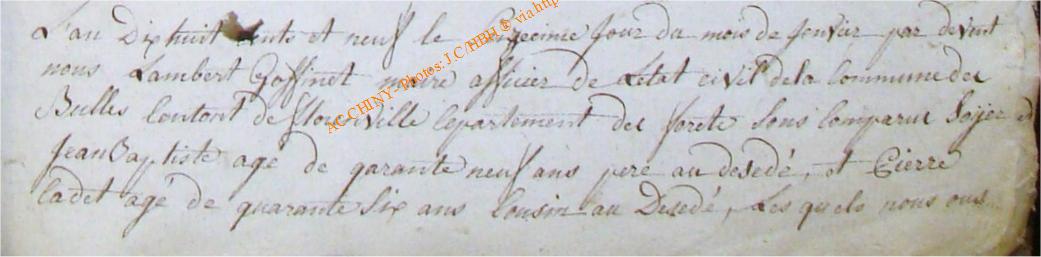 L'an Dixhuit Cents et neuf le jour du mois de Jenvier par devent
nous Lambert Goffinet maire officier de Letat civil de la Commune des
Bulles Contont de florenville Cepartement des forete Sons Comparue
Jean Baptiste agé de garante neuf ans pere au desedé, et Pierre
Cadet agé de quarante Six ans Cousin au Desedé, Les quels nous ons
AC CHINY - Photos: J.C/HBH © via http